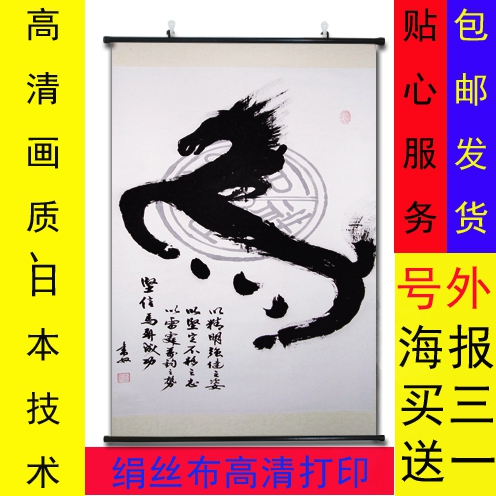 高清画质、日本技术
贴心服务
包邮发货
号外
海报
买三
送一
以精明强健之姿
以堅定不移之志
以雷霆萬鈞之势
堅信馬成功
绢丝布高清打印